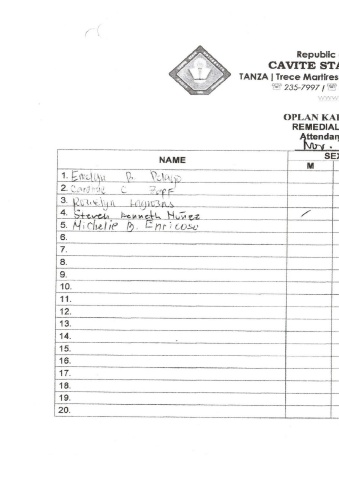 Republic
CAVITE STA
TANZA | Trece Martires
☏ 235-7997 | ☏
OPLAN KAL
REMEDIAL
Attendan
Nov.
NAME
SEX
M
1. Emelyn B.
2. C.
3.
4. Steven Kenneth Muñez
5. Michelle B. Enricoso
6.
7.
8.
9.
10.
11.
12.
13.
14.
15.
16.
17.
18.
19.
20.